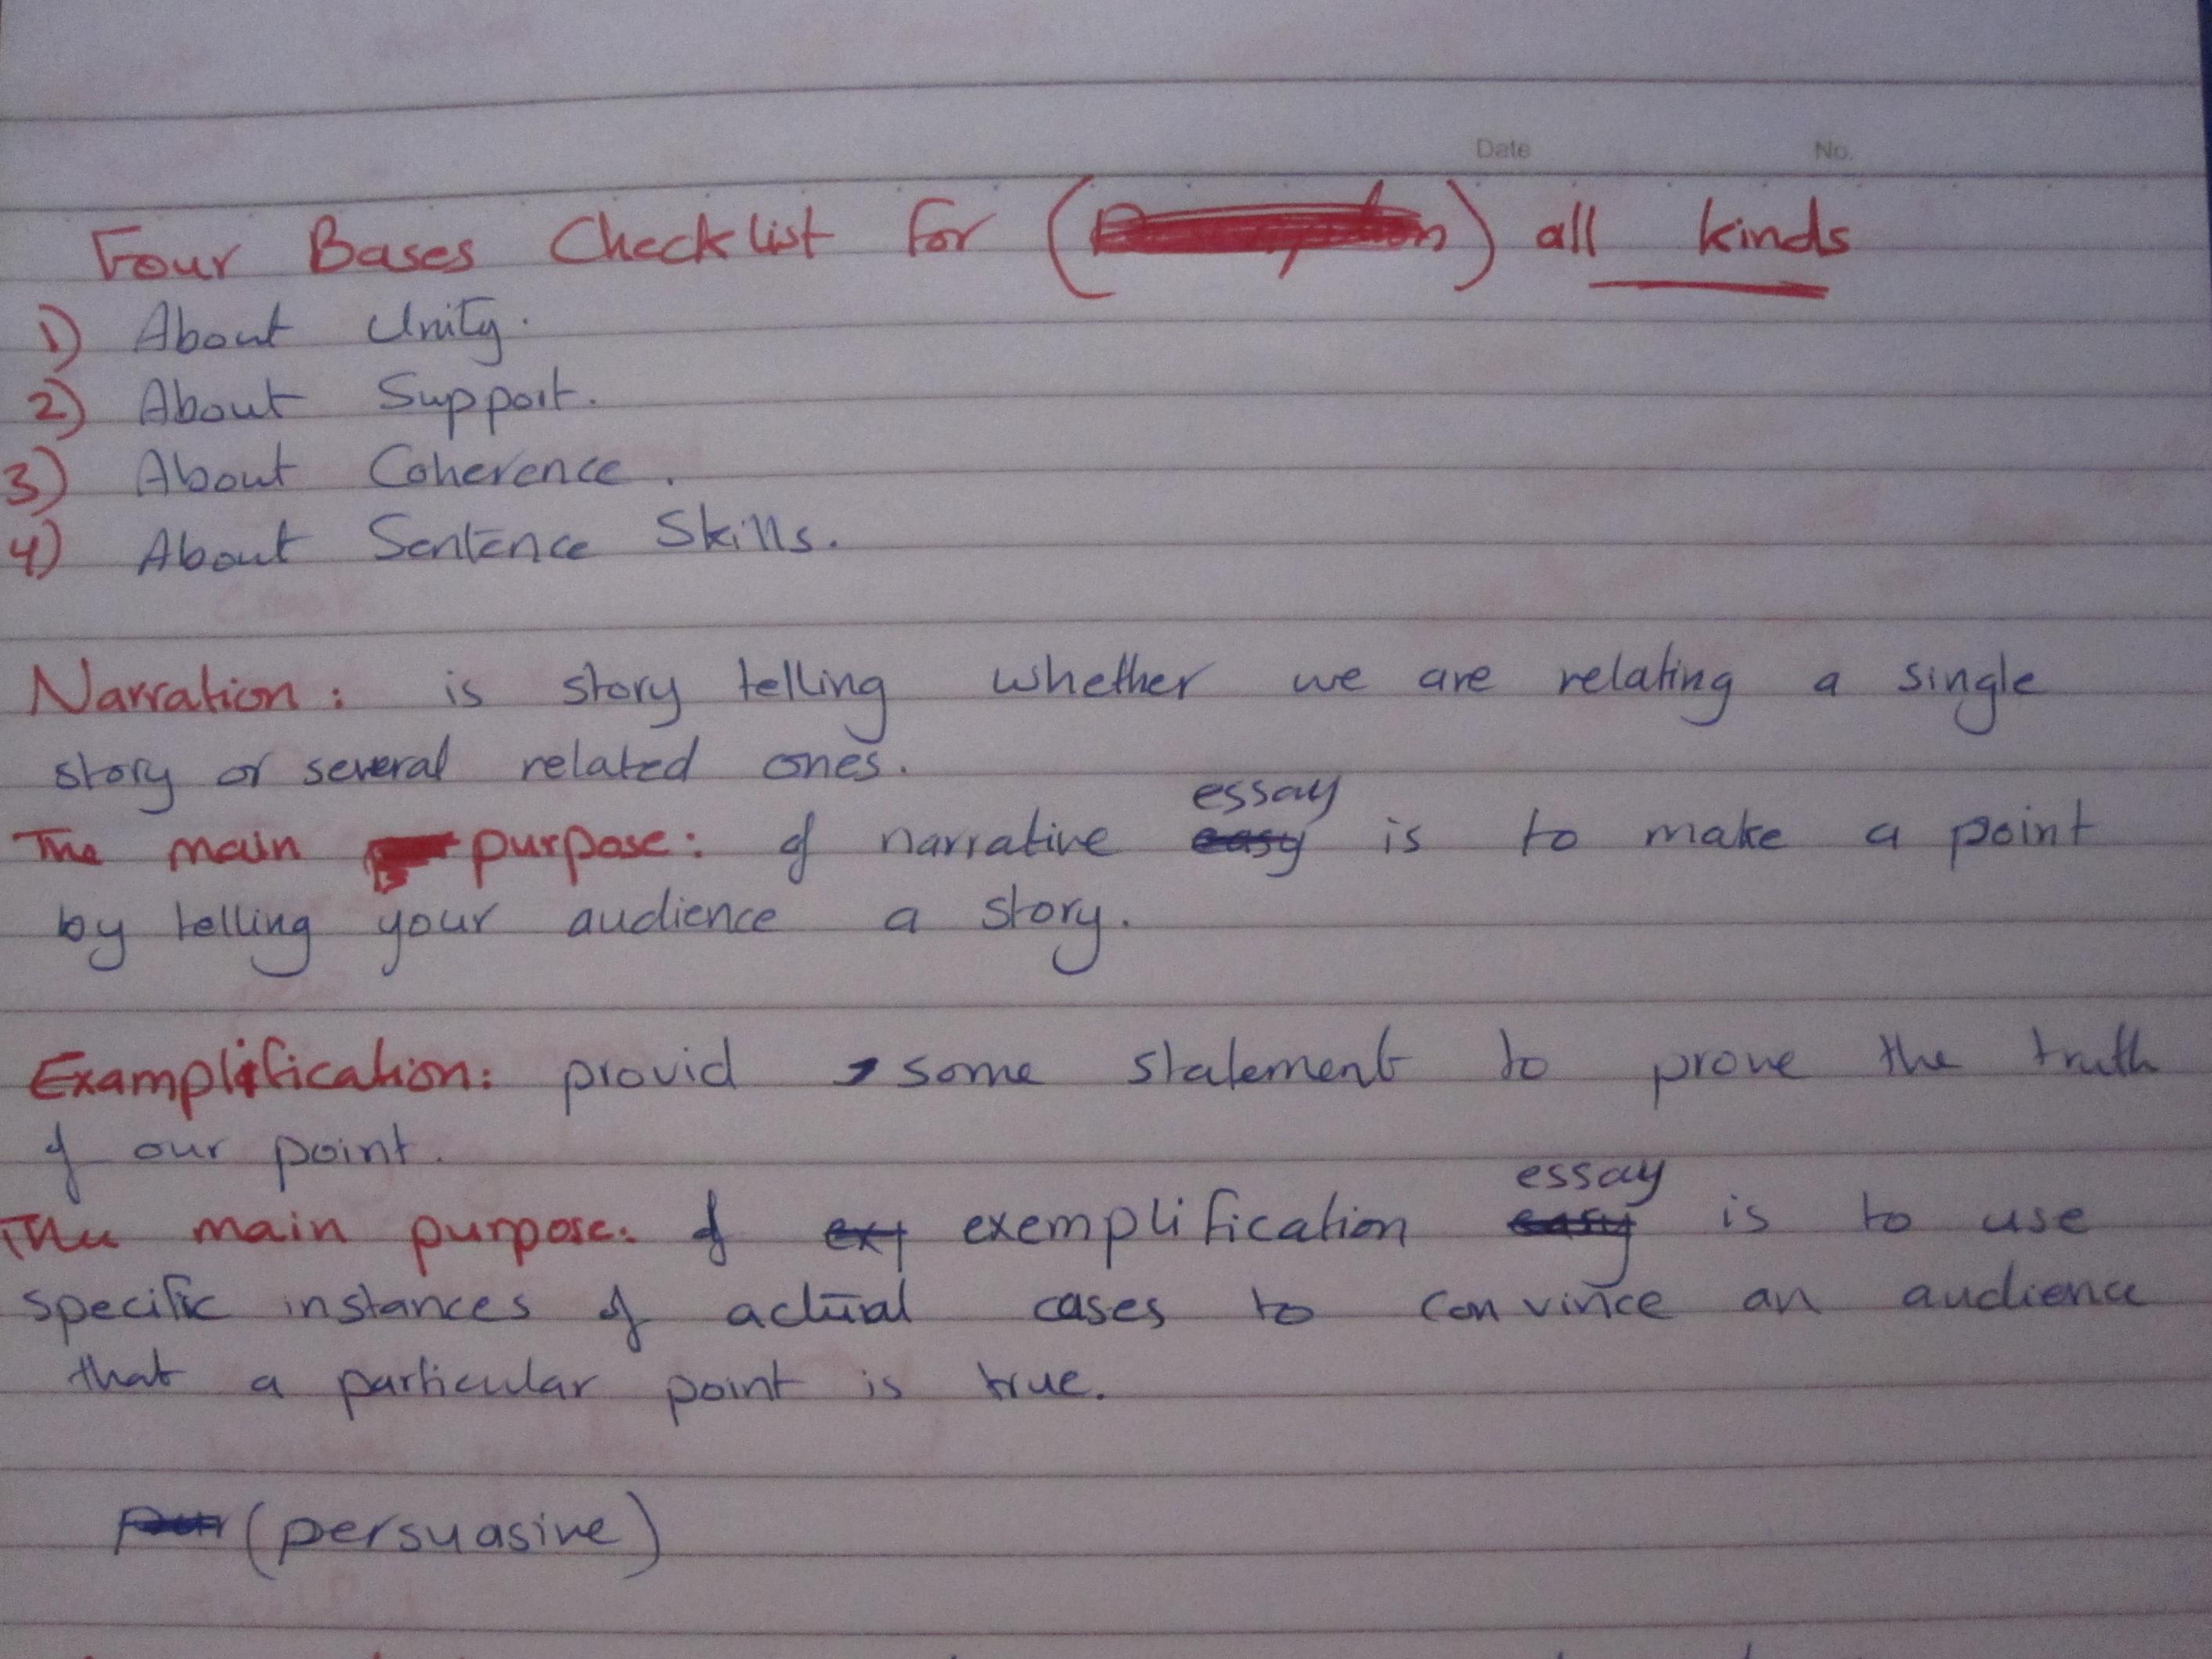 Date No.
Four Bases Checklist for ( ) all kinds
1) About Unity.
2) About Support.
3) About Coherence.
4) About Sentence Skills.
Narration: is story telling whether we are relating a single
story or several related ones.
The main purpose: of narrative essay is to make a point
by telling your audience a story.
Examplification: provid some statement to prove the truth
of our point.
The main purpose: of exemplification essay is to use
specific instances of actual cases to convince an audience
that a particular point is true.
(persuasive)